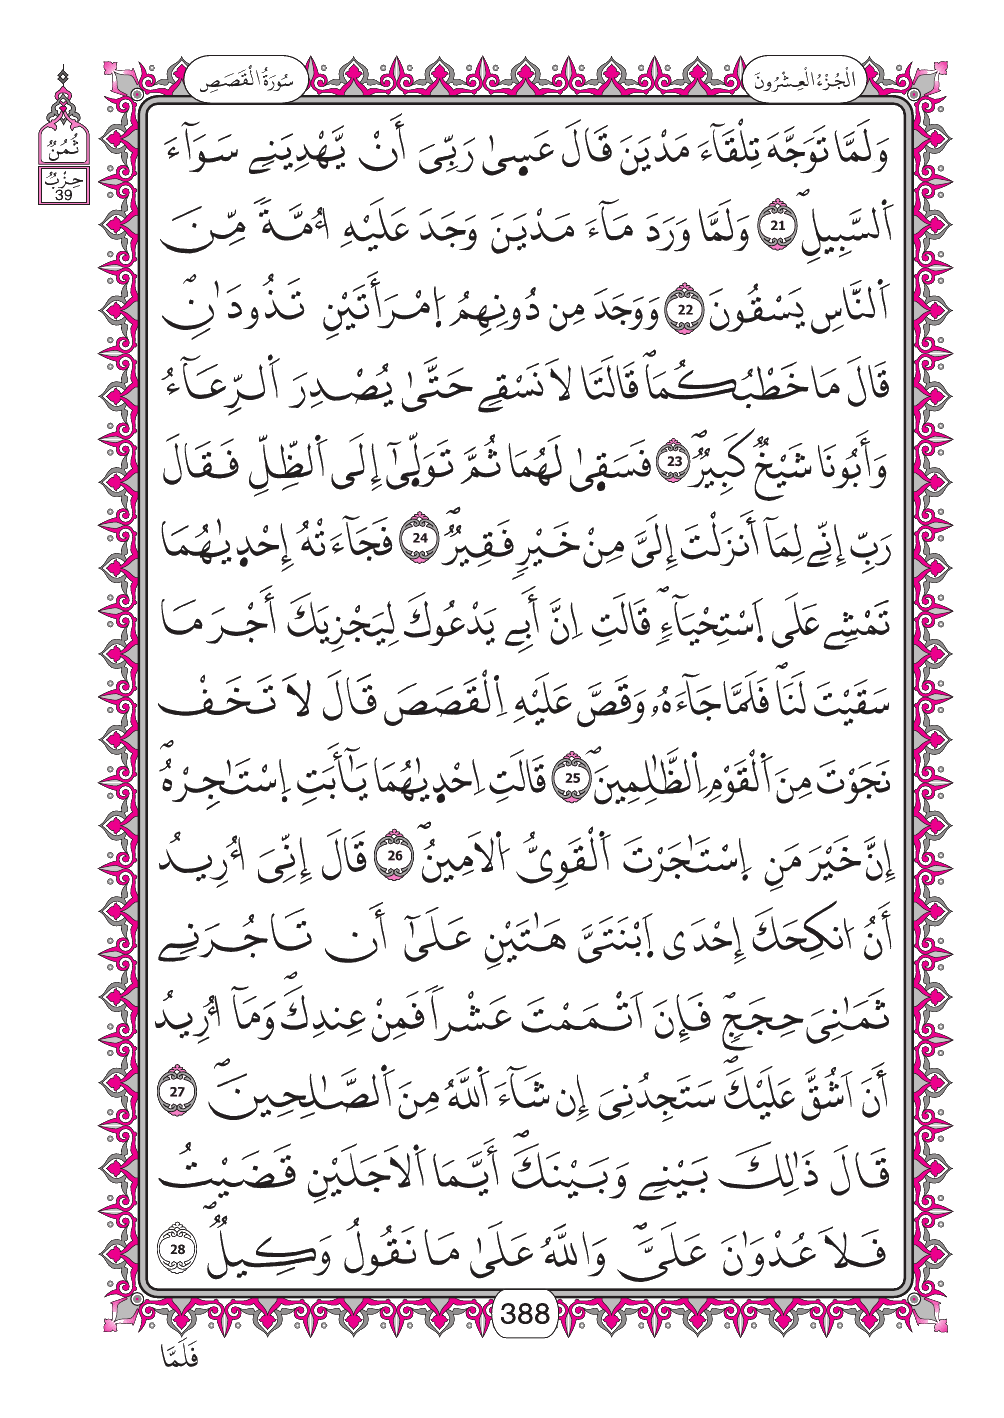 سُورَةُ الْقَصَصِ
الْجُزْءُ الْعِشْرُونَ
ثُمُنٌ
حِزْبٌ
39
وَلَمَّا تَوَجَّهَ تِلْقَآءَ مَدْيَنَ قَالَ عَسۭيٰ رَبِّيَ أَنْ يَّهْدِيَنِے سَوَآءَ
اَ۬لسَّبِيلِۖ 21 وَلَمَّا وَرَدَ مَآءَ مَدْيَنَ وَجَدَ عَلَيْهِ أُمَّةٗ مِّنَ
اَ۬لنَّاسِ يَسْقُونَ 22 وَوَجَدَ مِن دُونِهِمُ اِ۪مْرَأَتَيْنِ تَذُودَٰنِۖ
قَالَ مَا خَطْبُكُمَاۖ قَالَتَا لَا نَسْقِے حَتَّىٰ يُصْدِرَ اَ۬لرِّعَآءُ
وَأَبُونَا شَيْخٞ كَبِيرٞۖ 23 فَسَقۭيٰ لَهُمَا ثُمَّ تَوَلّۭيٰٓ إِلَى اَ۬لظِّلِّ فَقَالَ
رَبِّ إِنِّے لِمَآ أَنزَلْتَ إِلَيَّ مِنْ خَيْرٖ فَقِيرٞۖ 24 فَجَآءَتْهُ إِحْد۪يٰهُمَا
تَمْشِے عَلَى اَ۪سْتِحْيَآءٖۖ قَالَتِ اِنَّ أَبِے يَدْعُوكَ لِيَجْزِيَكَ أَجْرَ مَا
سَقَيْتَ لَنَاۖ فَلَمَّا جَآءَهُۥ وَقَصَّ عَلَيْهِ اِ۬لْقَصَصَ قَالَ لَا تَخَفْ
نَجَوْتَ مِنَ اَ۬لْقَوْمِ اِ۬لظَّٰلِمِينَۖ 25 قَالَتِ اِحْد۪يٰهُمَا يَٰٓأَبَتِ اِ۪سْتَٰجِرْهُۖ
إِنَّ خَيْرَ مَنِ اِ۪سْتَٰجَرْتَ اَ۬لْقَوِيُّ اُ۬لَامِينُۖ 26 قَالَ إِنِّيَ أُرِيدُ
أَنُ ا۟نكِحَكَ إِحْدَى اَ۪بْنَتَيَّ هَٰتَيْنِ عَلَىٰٓ أَن تَاجُرَنِے
ثَمَٰنِيَ حِجَجٖۖ فَإِنَ اَتْمَمْتَ عَشْراٗ فَمِنْ عِندِكَۖ وَمَآ أُرِيدُ
أَنَ اَشُقَّ عَلَيْكَۖ سَتَجِدُنِيَ إِن شَآءَ اَ۬للَّهُ مِنَ اَ۬لصَّٰلِحِينَۖ 27
قَالَ ذَٰلِكَ بَيْنِے وَبَيْنَكَۖ أَيَّمَا اَ۬لَاجَلَيْنِ قَضَيْتُ
فَلَا عُدْوَٰنَ عَلَيَّۖ وَاللَّهُ عَلَىٰ مَا نَقُولُ وَكِيلٞۖ 28
388
فَلَمَّا